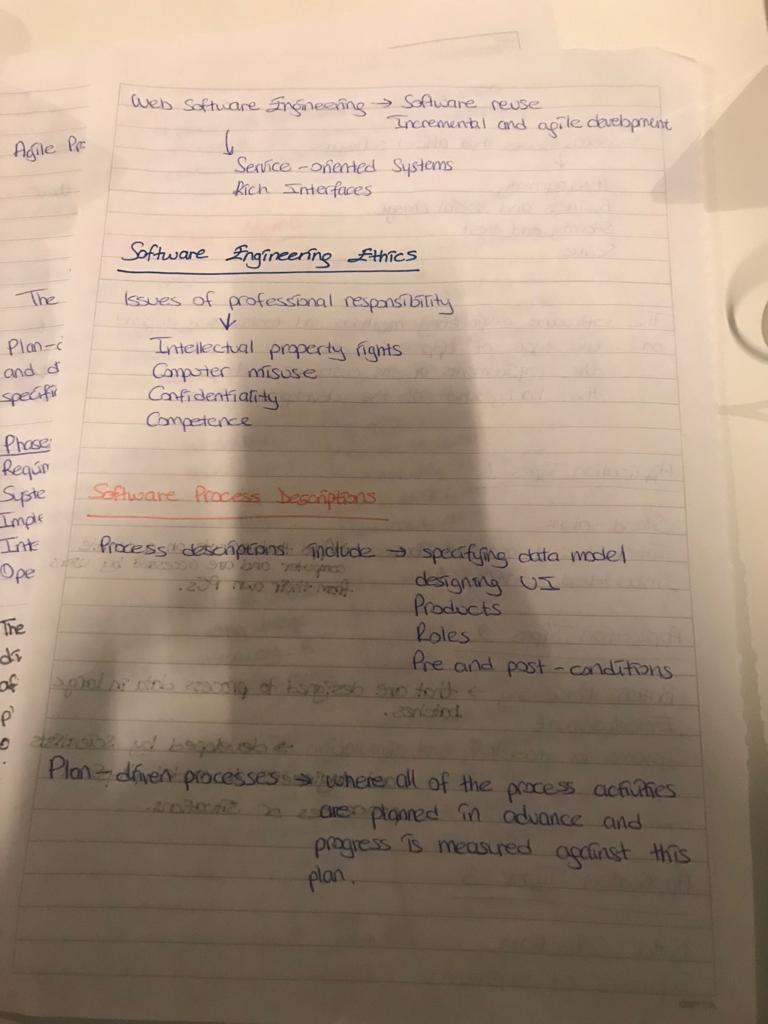 Web Software Engineering → Software reuse
Incremental and agile development
↓
Service-oriented Systems
Rich Interfaces
Software Engineering Ethics
Issues of professional responsibility
↓
Intellectual property rights
Computer misuse
Confidentiality
Competence
Software Process Descriptions
Process descriptions include → specifying data model
designing UI
Products
Roles
Pre and post-conditions
Plan-driven processes → where all of the process activities
are planned in advance and
progress is measured against this
plan.
Agile
The
Plan-
and
Phase
The
of